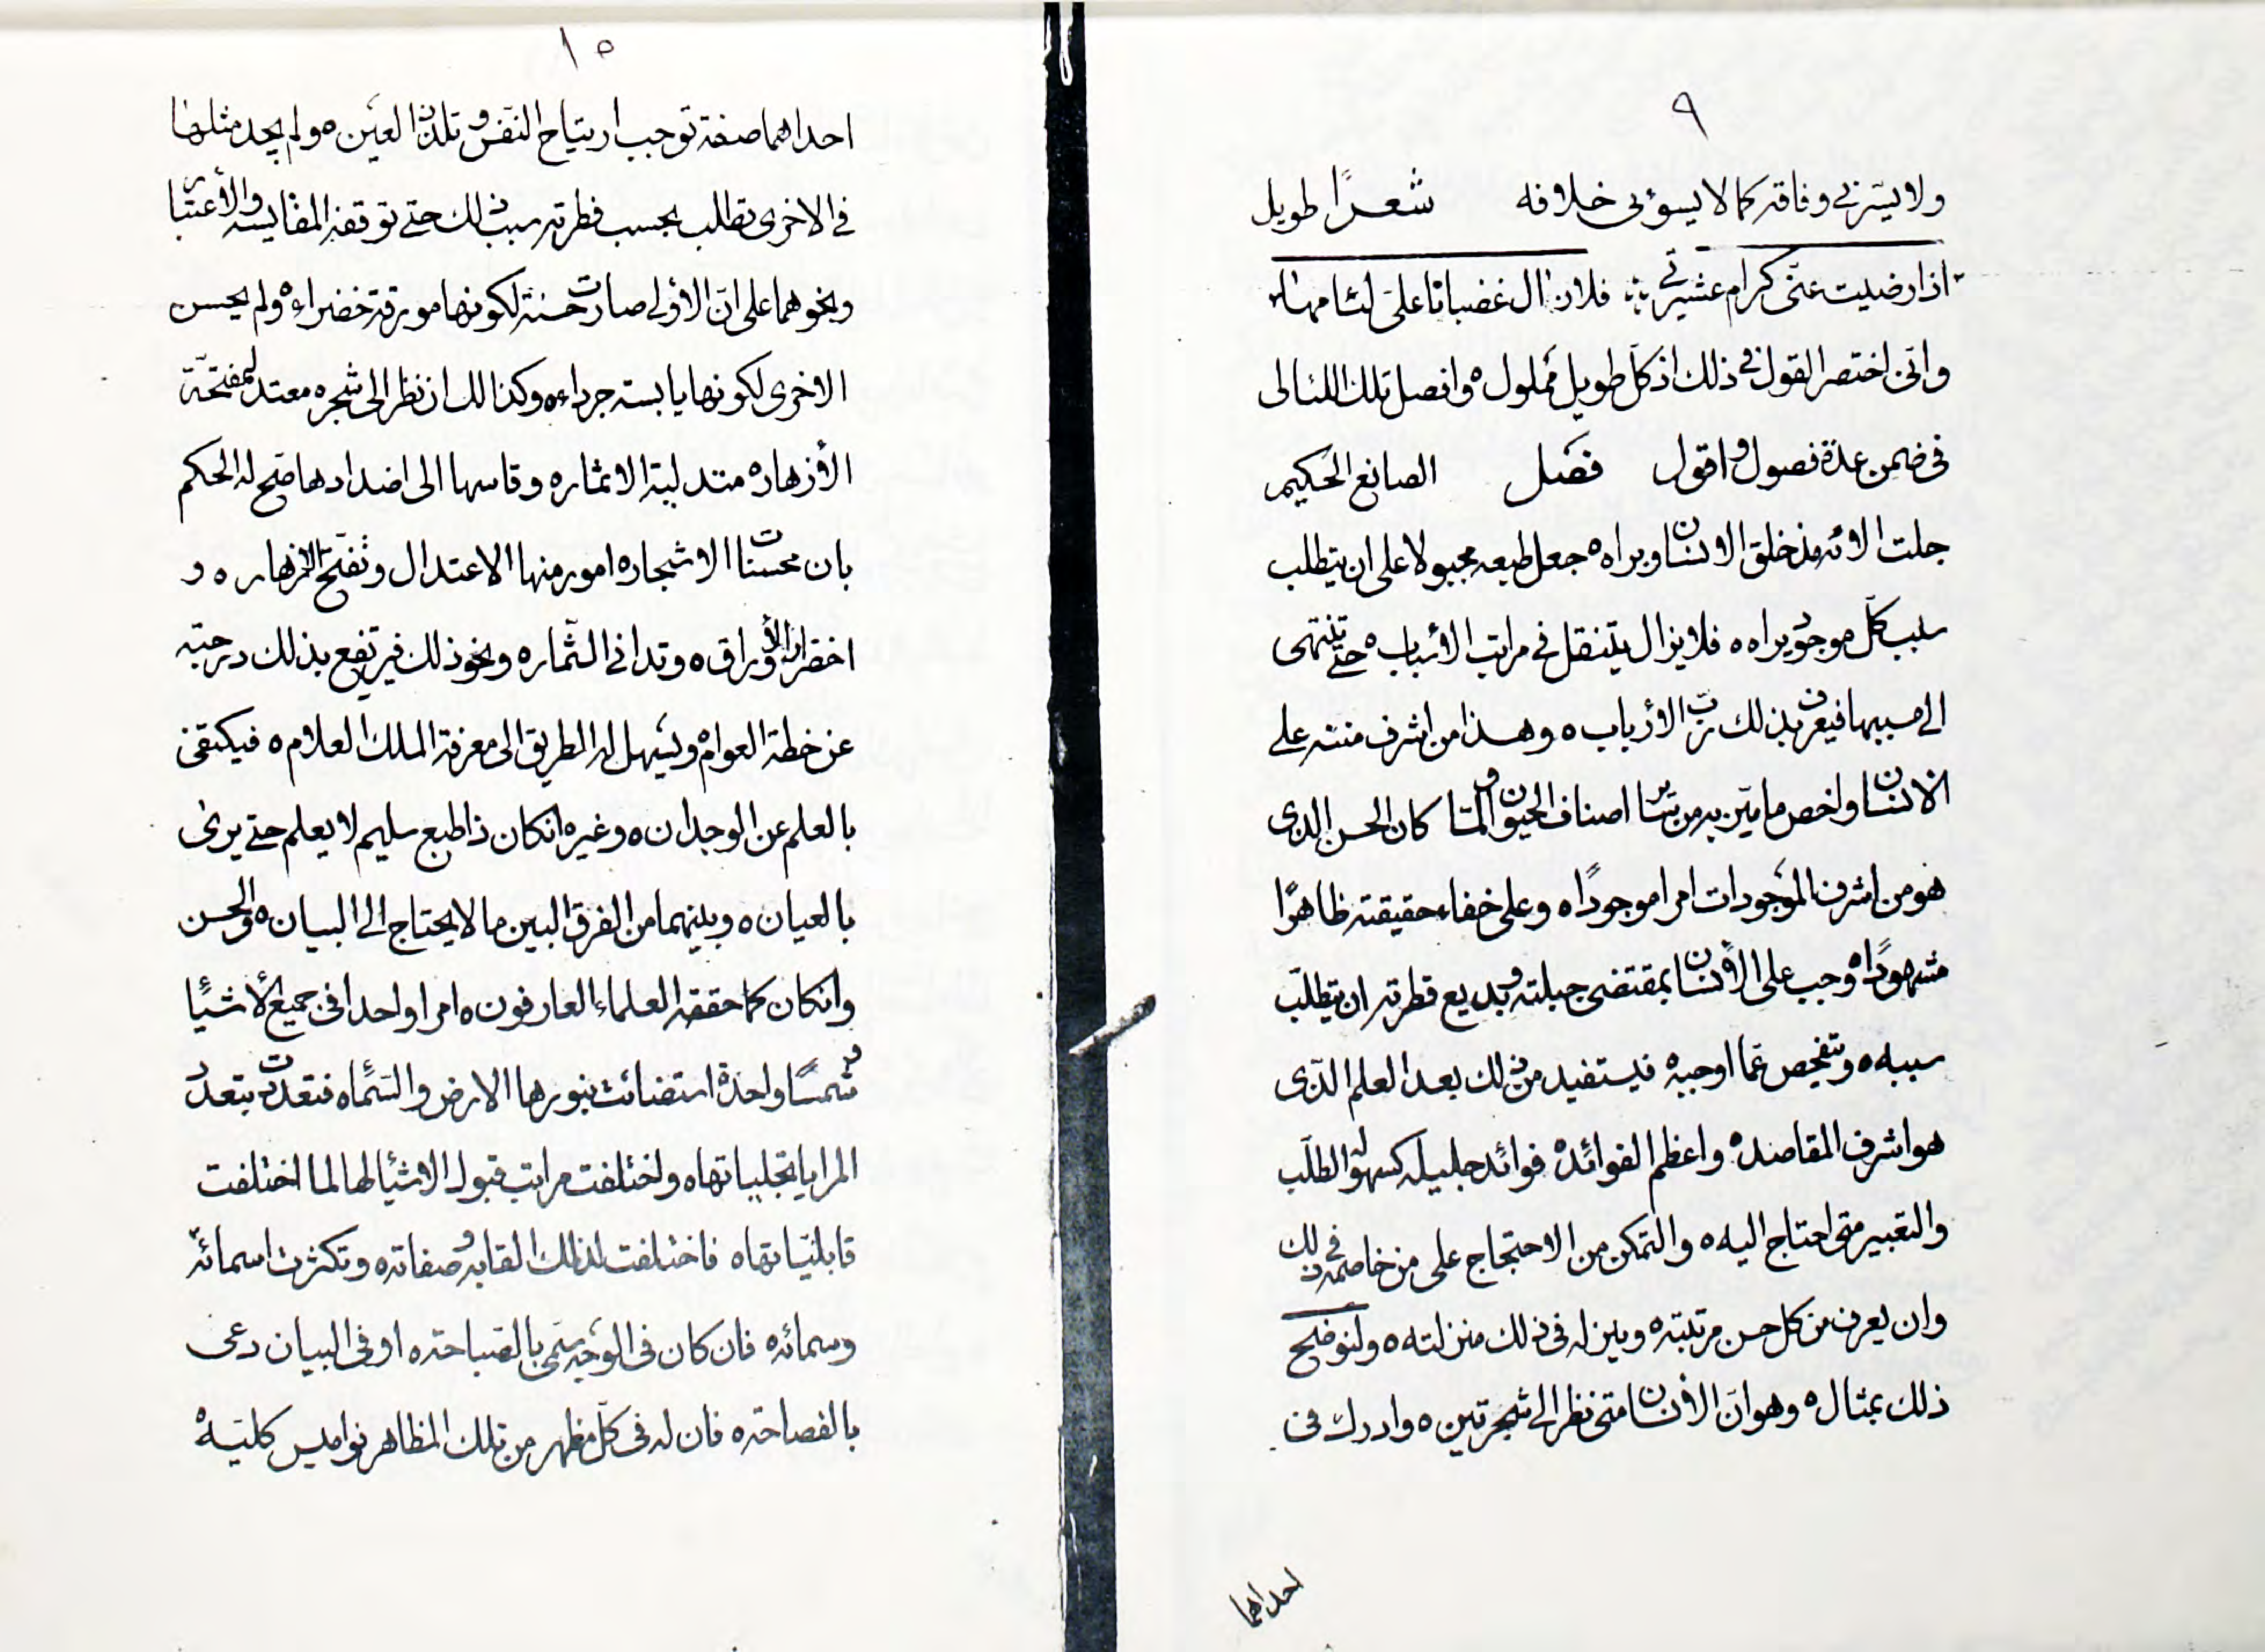 ٩
ولا يسّرني وفاقه كما لا يسوؤني خلافه شعرًا طويل
اذا رضيت عنّى كرام عشيرتي فلا زال غضبانا علىّ لئامها
وانّى اختصر القول فى ذلك اذ كلّ طويل مملول ه وافصل تلك اللئالى
فى ضمن عدة فصول واقول فصل الصانع الحكيم
جلت الائه مذ خلق الانسان وبراه ه جعل طبعه مجبولا على ان يتطلب
سبب كلّ موجود يراه ه فلا يزال يتنقل فى مراتب الأسباب ه حتى تنتهى
الى مسببها فيعرف بذلك ربّ الأرباب ه وهذا من اشرف مننه على
الانسان واخص ما ميّز به من سائر اصناف الحيوان ولمّا كان الحسن الذى
هو من اشرف الموجودات امرا موجودًا ه وعلى خفاء حقيقته ظاهرًا
مشهودًا ه وجب على الأنسان بمقتضى جبلته وبديع فطرته ان يتطلّب
سببه ه ويتفحص عمّا اوجبه ه فيستفيد من ذلك بعد العلم الذّى
هو اشرف المقاصد ه واعظم الفوائد ه فوائد جليله كسهولة الطلّب
والتعبير متى احتاج اليه ه والتمكن من الاحتجاج على من خاصمه فى ذلك
وان يعرف من كل حسن مرتبته ه وينزله فى ذلك منزلته ه ولنوضح
ذلك بمثال ه وهو انّ الأنسان متى نظر الى شجرتين ه وادرك فى
احداهما
١٠
احداهما صفة توجب ارتياح النفس وتلذذ العين ه ولم يجد مثلها
فى الاخرى تطلب بحسب فطرته سبب ذلك حتى توقفه المقايسه والأعتبار
ونحوهما على انّ الأولى صارت حسنة لكونها مورقة خضراء ه ولم يحسن
الاخرى لكونها يابسته جرداء ه وكذالك ان نظر الى شجره معتدلة مفتحّة
الأزهار ه متدلية الاثمار ه وقاسها الى اضدادها صّح له الحكم
بان محسنات الاشجار ه امور منها الاعتدال وتفتّح الازهار ه و
اخضرار الأوراق ه وتدانى الثّمار ه ونحو ذلك فيرتفع بذلك درجته
عن خطة العوام ه ويسهل له الطريق الى معرفة الملك العلام ه فيكتفى
بالعلم عن الوجدان ه وغيره انكان ذا طبع سليم لا يعلم حتى يرى
بالعيان ه وبينهما من الفرق البين ما لا يحتاج الى البيان ه والحسن
وانكان كما حققه العلماء العارفون ه امرا واحدا فى جميع الأشيأ
وشمسًا واحدة استضائت بنورها الارض والسّماء ه فتعددت بتعدد
المرايا تجلياتها ه واختلفت مراتب قبول الاشيا لها لما اختلفت
قابليّاتها ه فاختلفت لذلك القابه وصفاته ه وتكثرت اسمائه
وسمائه ه فان كان فى الوجه سّمى بالصّباحة ه او فى البيان دعى
بالفصاحة ه فان له فى كلّ مظهر من تلك المظاهر نواميس كليّة ه